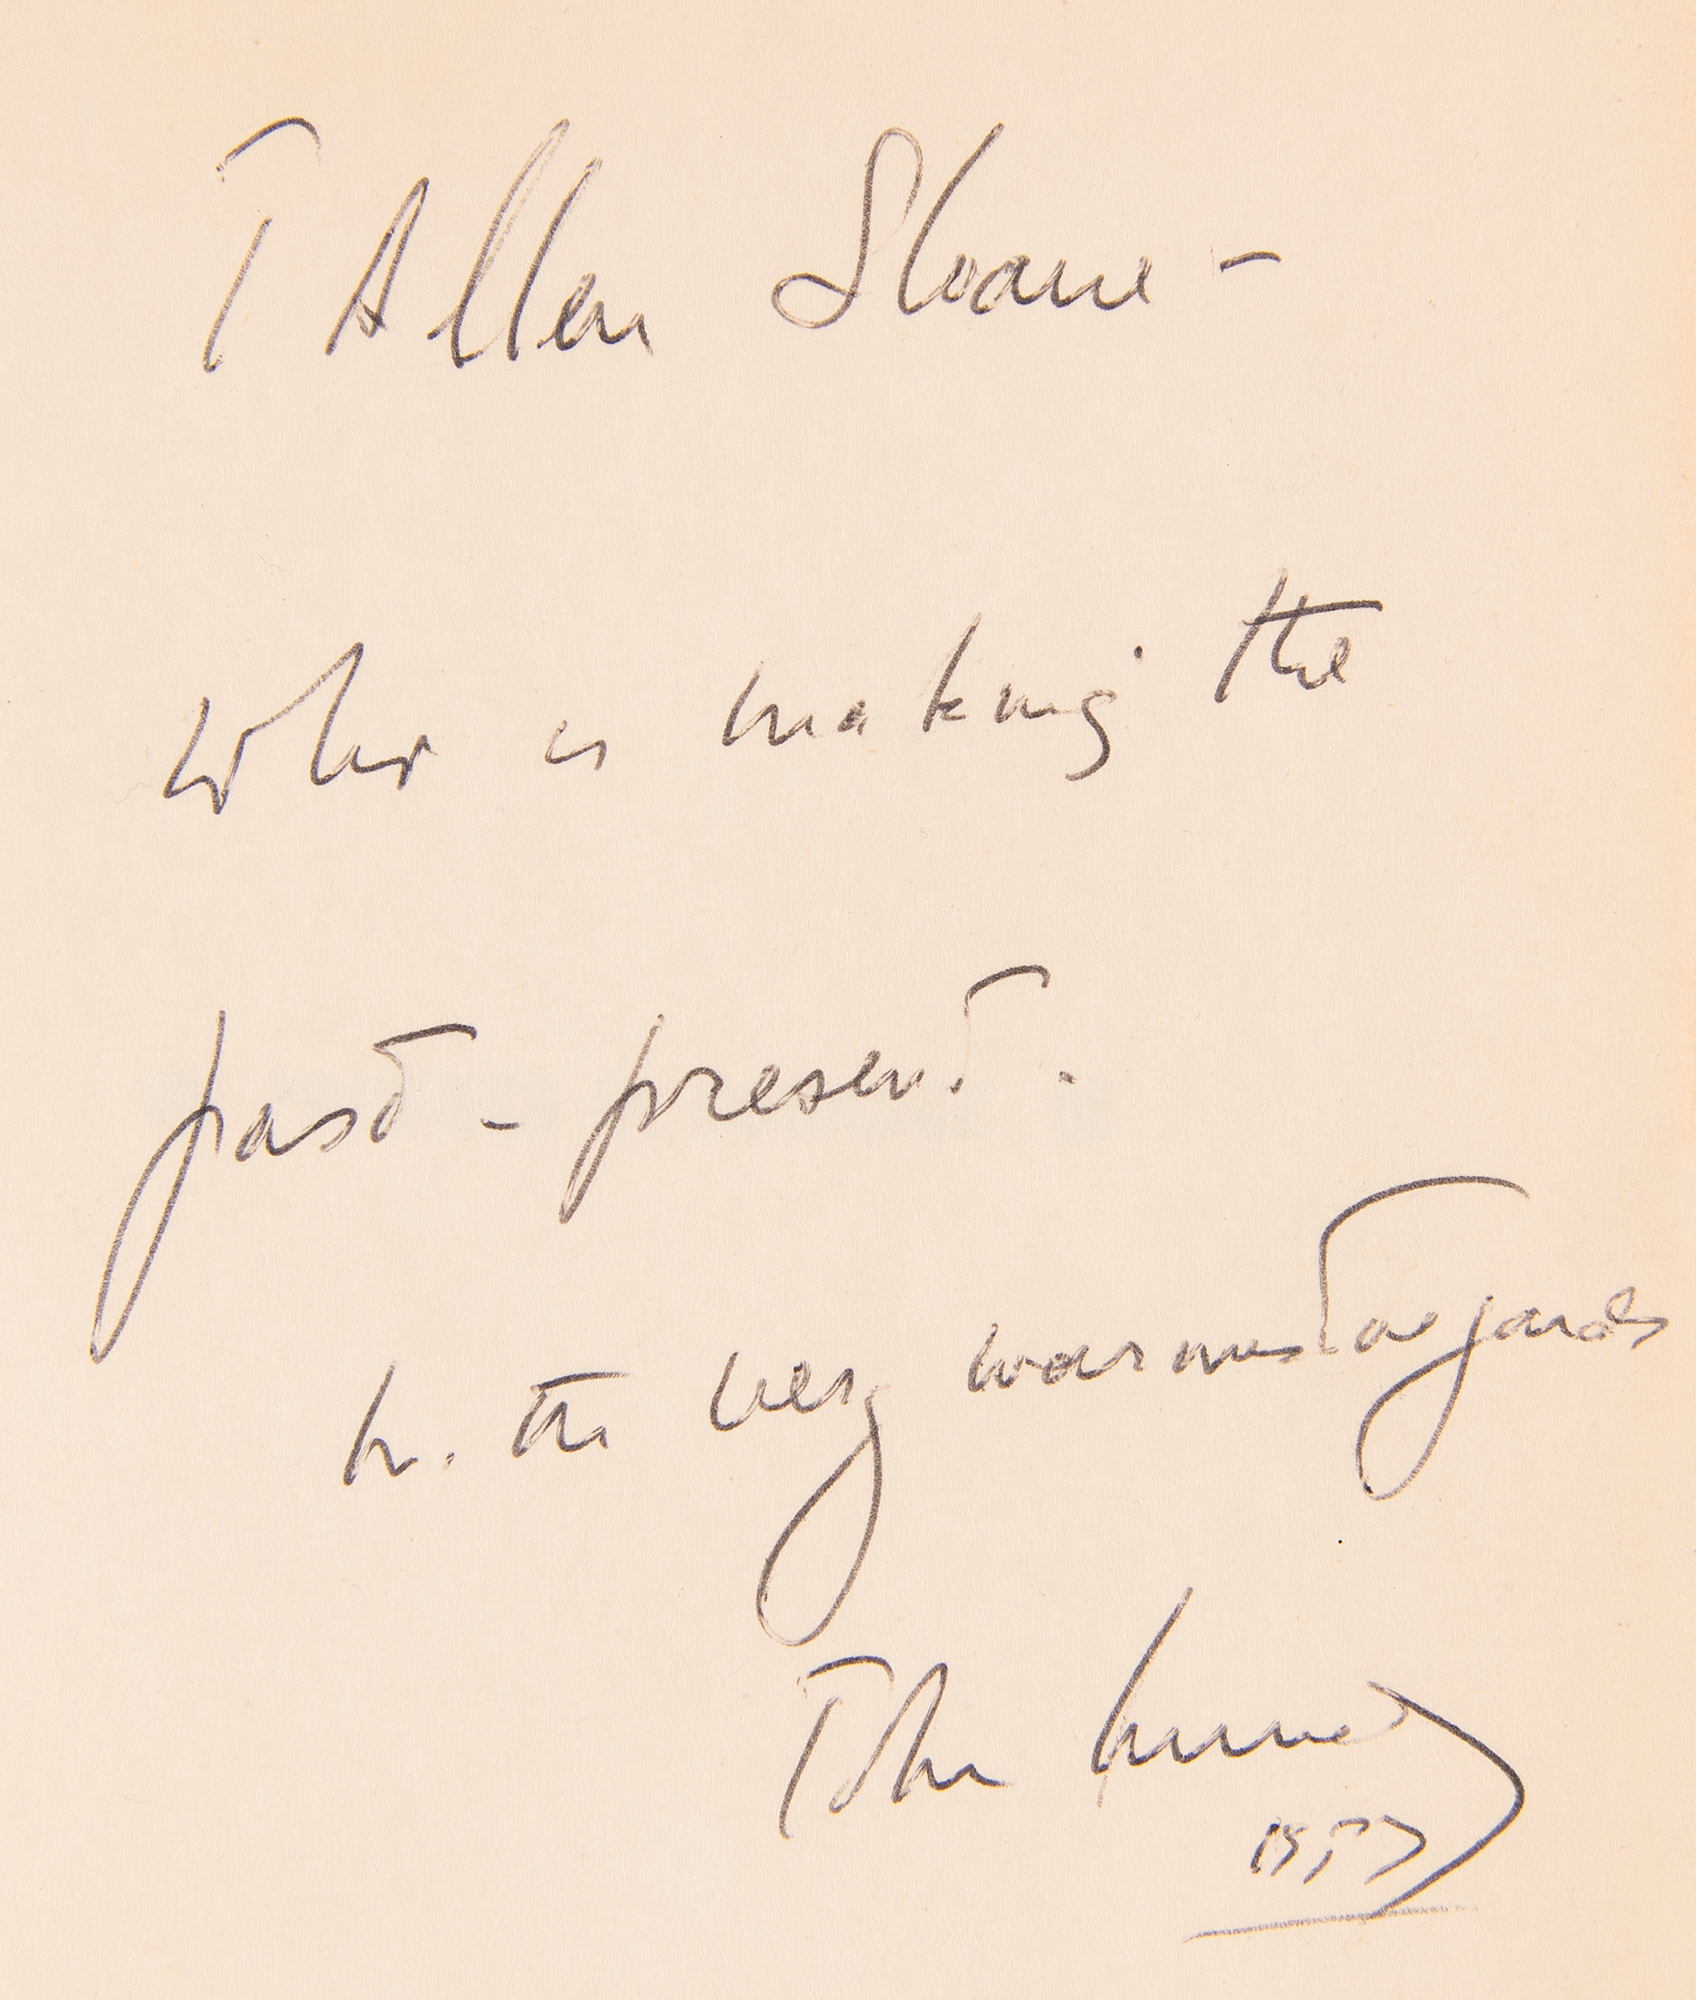 T Allen Sloane -
who is making the
past - present.
with very warmest regards
John Kennedy
1957